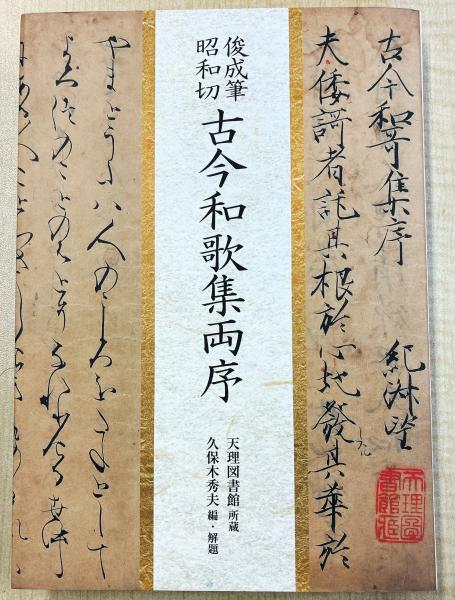 古今和哥集序 紀淑望
夫倭謌者託其根於心地發其華於
天理圖
書館藏
俊成筆
昭和切
古今和歌集両序
天理図書館 所蔵
久保木秀夫 編・解題
やまとうたハ人のこゝろをたねとして
よろつのことのはとそなれりける世中